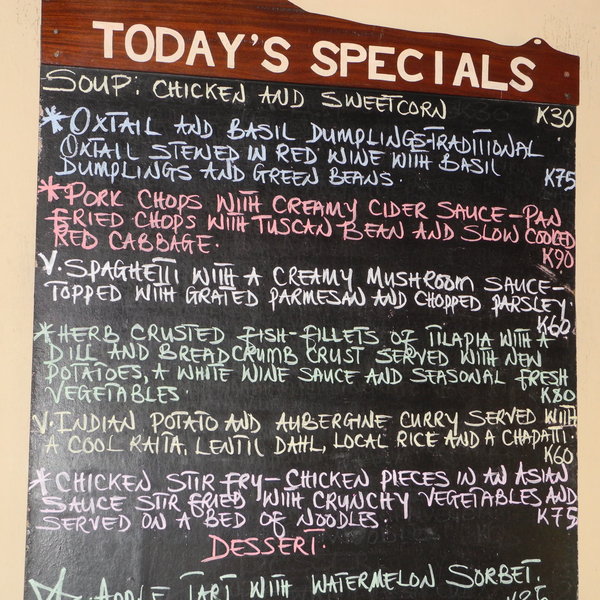 TODAY'S SPECIALS
SOUP: CHICKEN AND SWEETCORN K30
* OXTAIL AND BASIL DUMPLINGS-TRADITIONAL
OXTAIL STEWED IN RED WINE WITH BASIL
DUMPLINGS AND GREEN BEANS. K75
* PORK CHOPS WITH CREAMY CIDER SAUCE - PAN
FRIED CHOPS WITH TUSCAN BEAN AND SLOW COOKED
RED CABBAGE. K90
V. SPAGHETTI WITH A CREAMY MUSHROOM SAUCE-
TOPPED WITH GRATED PARMESAN AND CHOPPED PARSLEY.
K60
* HERB CRUSTED FISH-FILLETS OF TILAPIA WITH A
DILL AND BREADCRUMB CRUST SERVED WITH NEW
POTATOES, A WHITE WINE SAUCE AND SEASONAL FRESH
VEGETABLES. K80
V. INDIAN POTATO AND AUBERGINE CURRY SERVED WITH
A COOL RAITA, LENTIL DAHL, LOCAL RICE AND A CHAPATTI.
K60
* CHICKEN STIR FRY - CHICKEN PIECES IN AN ASIAN
SAUCE STIR FRIED WITH CRUNCHY VEGETABLES AND
SERVED ON A BED OF NOODLES. K75
DESSERT.
APPLE TART WITH WATERMELON SORBET.